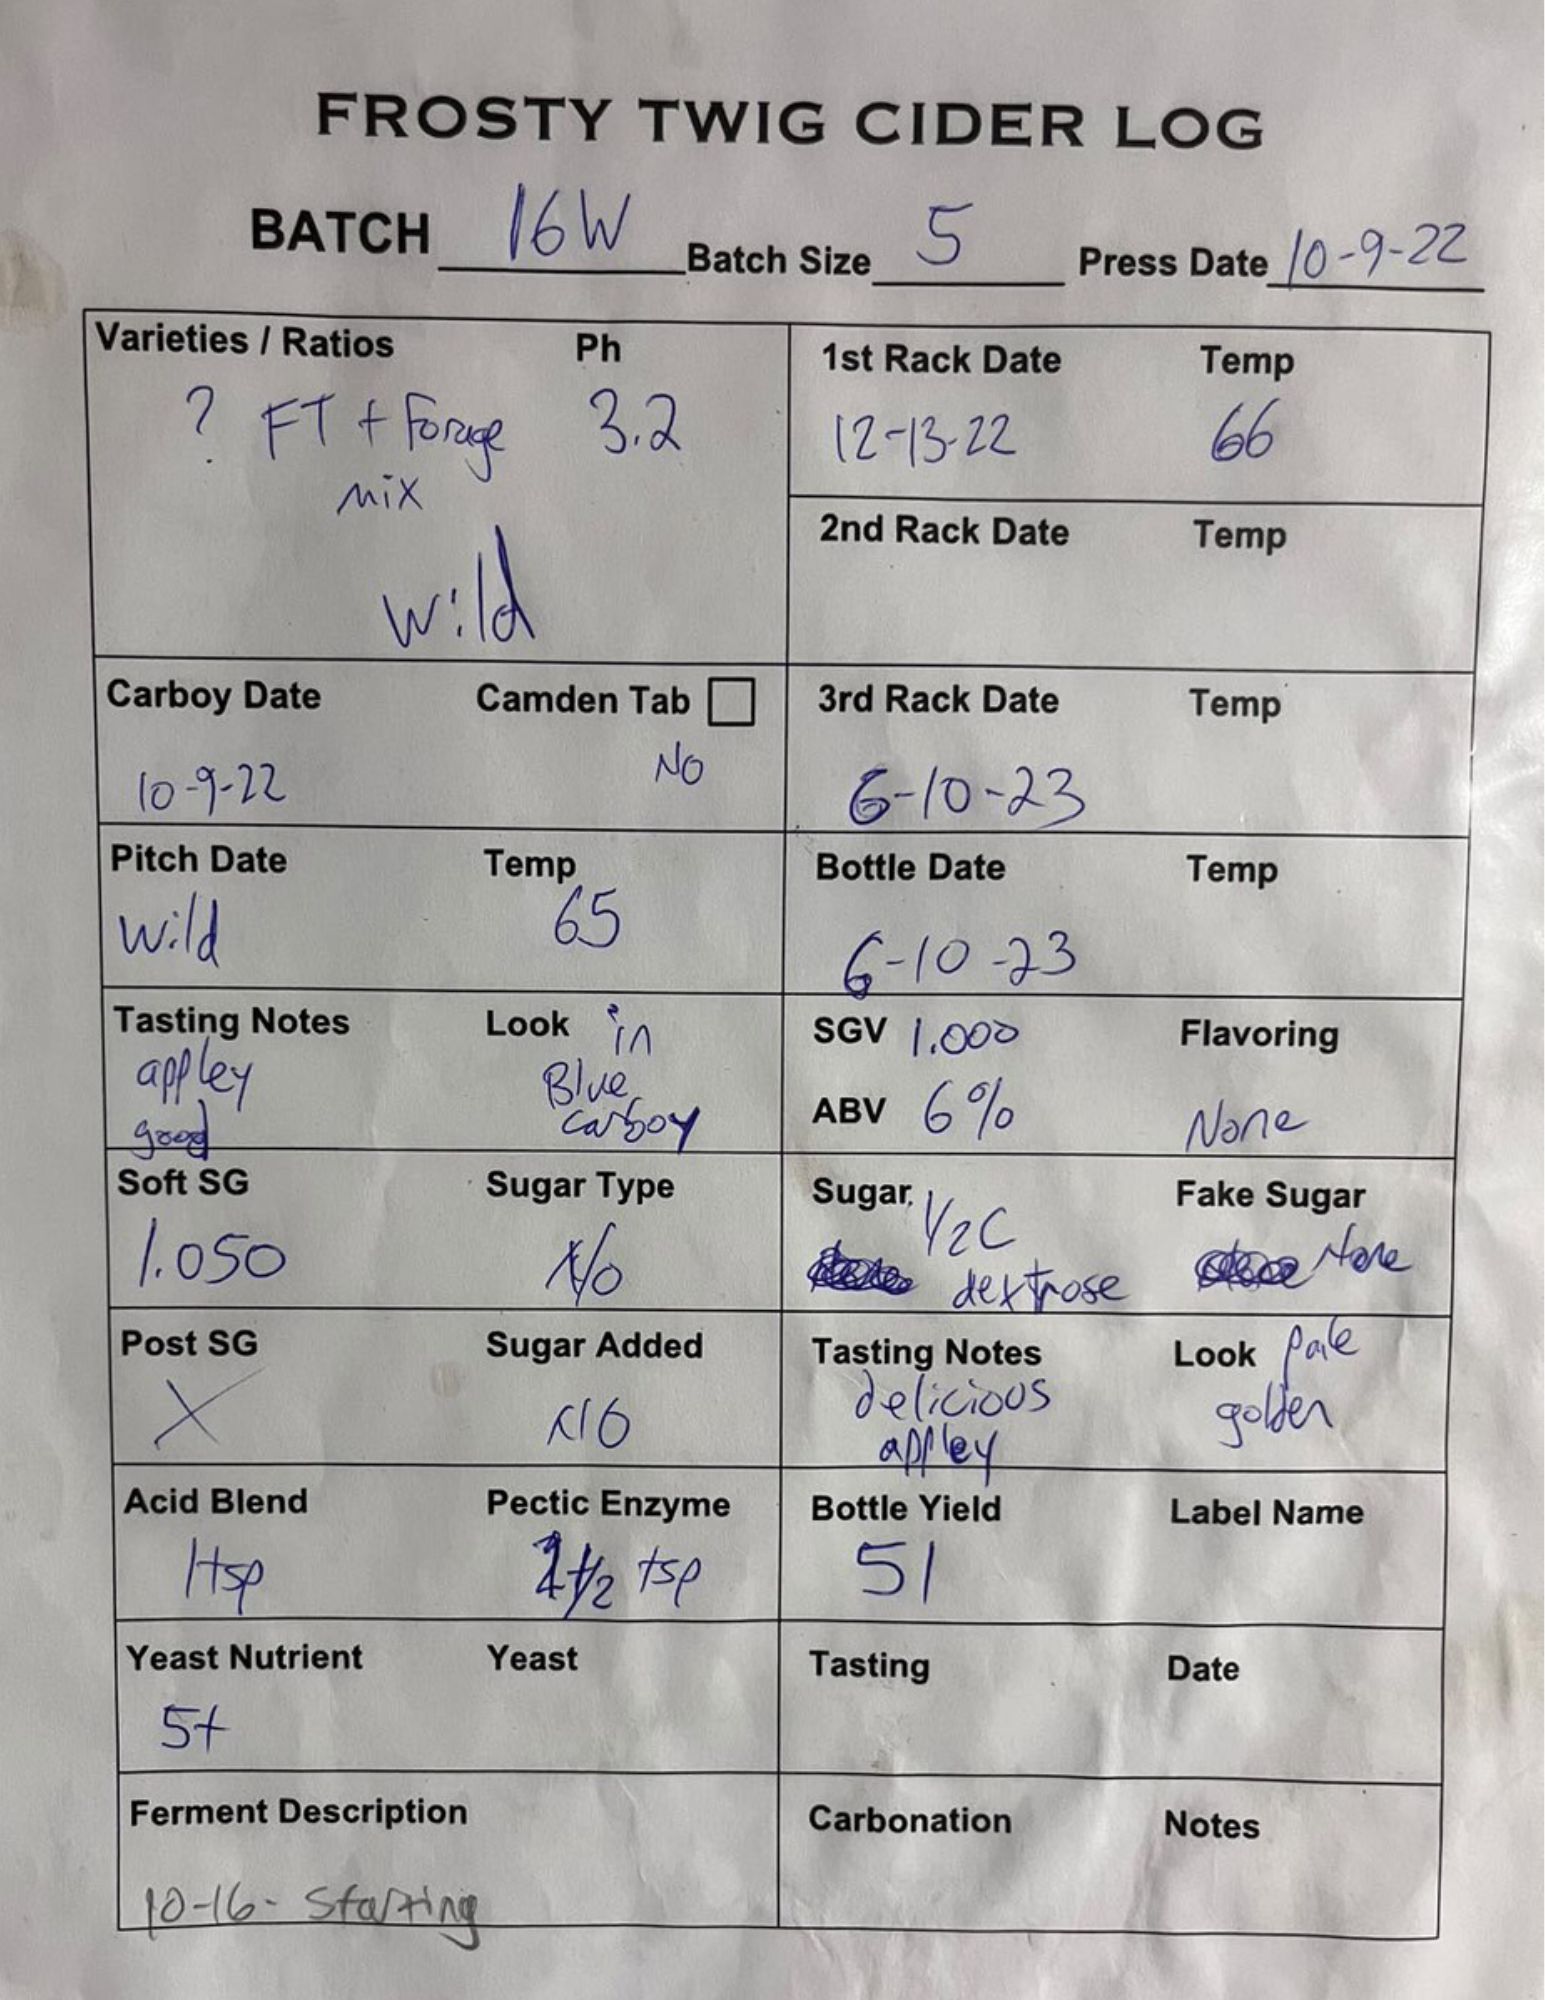 FROSTY TWIG CIDER LOG
BATCH 16W Batch Size 5 Press Date 10-9-22
Varieties / Ratios Ph
? FT + Forage 3.2
mix
Wild
1st Rack Date Temp
12-13-22 66
2nd Rack Date Temp
Carboy Date Camden Tab
10-9-22 No
3rd Rack Date Temp
6-10-23
Pitch Date Temp
Wild 65
Bottle Date Temp
6-10-23
Tasting Notes Look in
appley Blue
good carboy
SGV 1.000 Flavoring
ABV 6% None
Soft SG Sugar Type
1.050 No
Sugar 1/2 C Fake Sugar
dextrose None
Post SG Sugar Added
X NO
Tasting Notes Look pale
delicious golden
appley
Acid Blend Pectic Enzyme
1 tsp 1/2 tsp
Bottle Yield Label Name
51
Yeast Nutrient Yeast
5t
Tasting Date
Ferment Description
10-16- Starting
Carbonation Notes